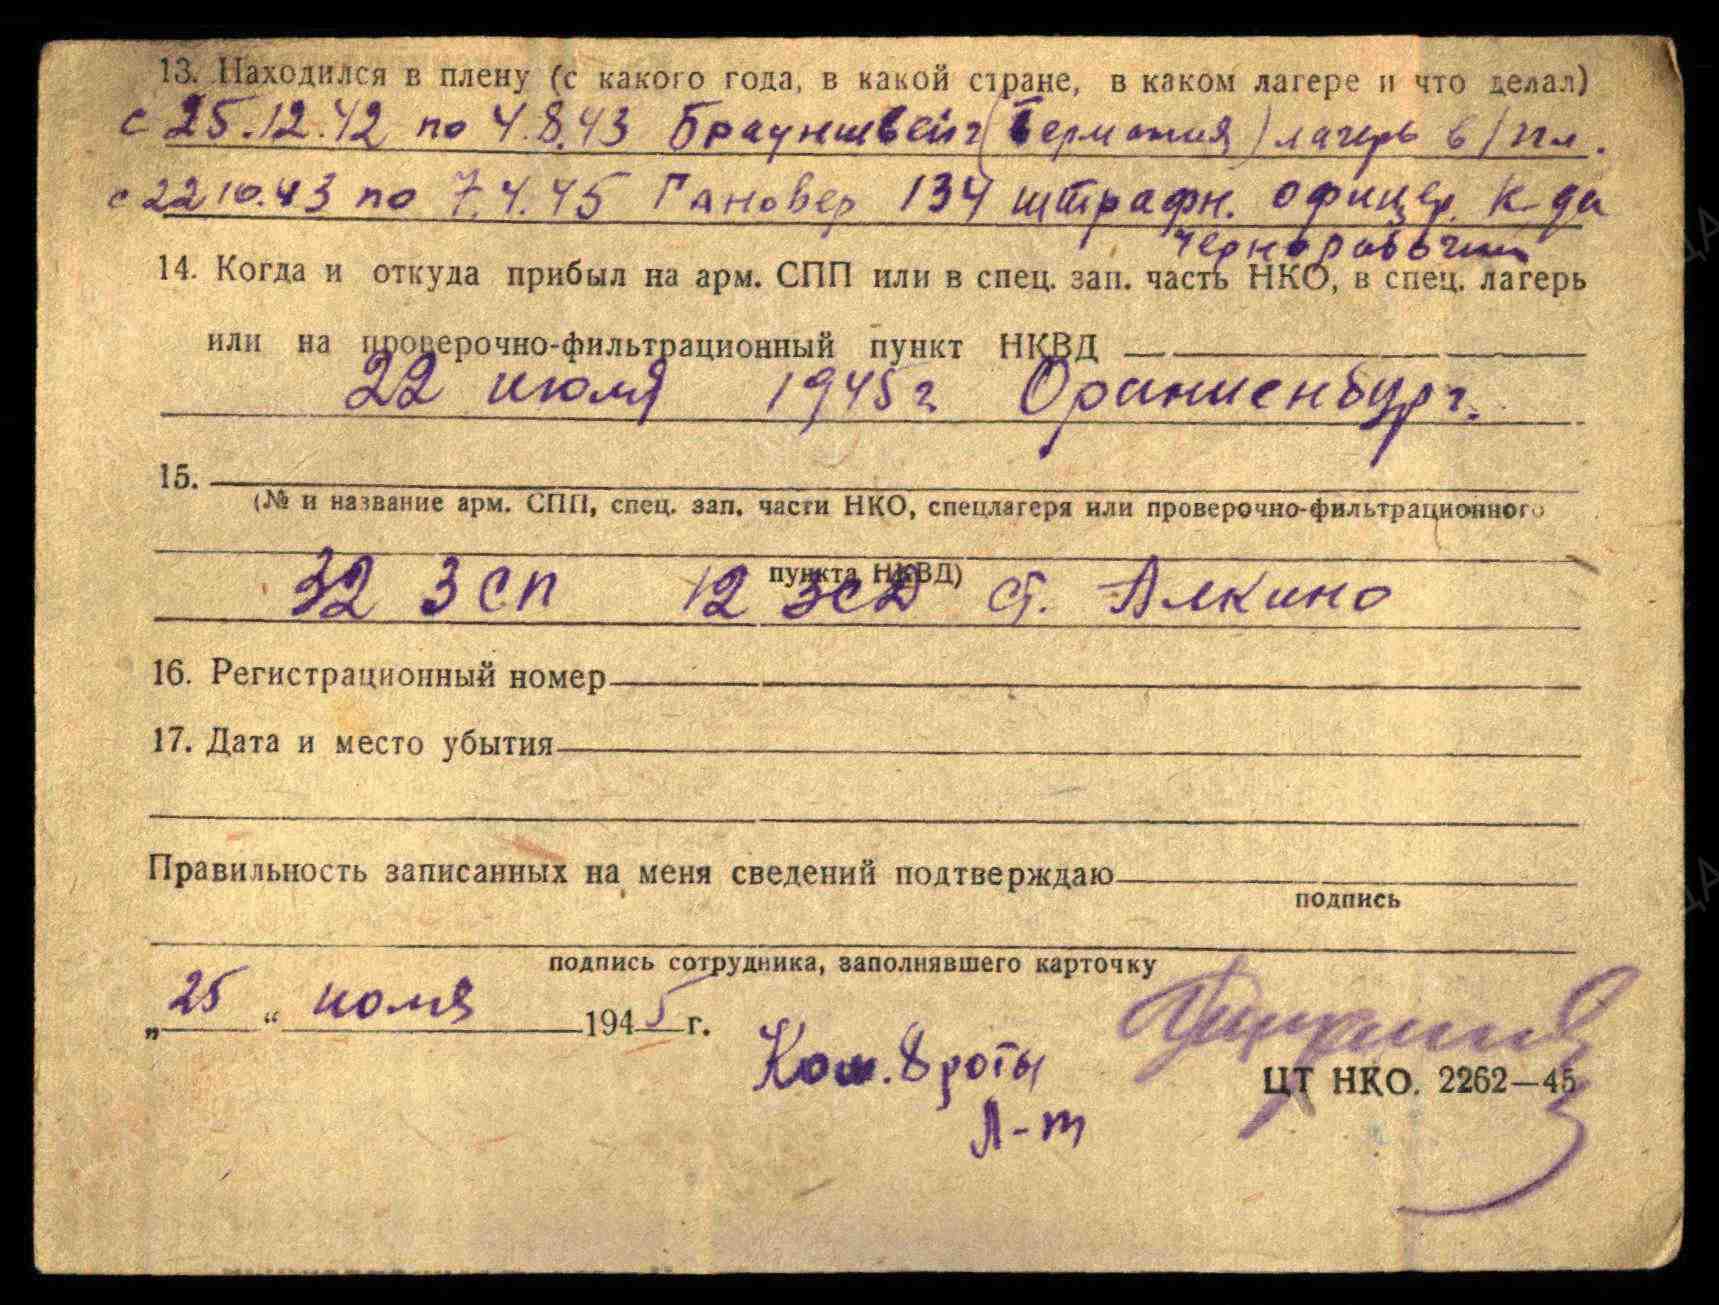 13. Находился в плену (с какого года, в какой стране, в каком лагере и что делал)
с 25.12.42 по 4.8.43 Брауншвейг (Германия) лагерь в/пл.
с 22 10.43 по 7.4.45 Гановер 134 штрафн. офицер. к-да
чернорабочий
14. Когда и откуда прибыл на арм. СПП или в спец. зап. часть НКО, в спец. лагерь
или на проверочно-фильтрационный пункт НКВД
22 июля 1945 г Ораниенбург.
15.
(№ и название арм. СПП, спец. зап. части НКО, спецлагеря или проверочно-фильтрационного
пункта НКВД)
32 ЗСП 12 ЗСД ст. Алкино
16. Регистрационный номер
17. Дата и место убытия
Правильность записанных на меня сведений подтверждаю
подпись
подпись сотрудника, заполнявшего карточку
„25“ июля 1945 г.
Ком. 8 роты
Л-т
ЦТ НКО. 2262—45